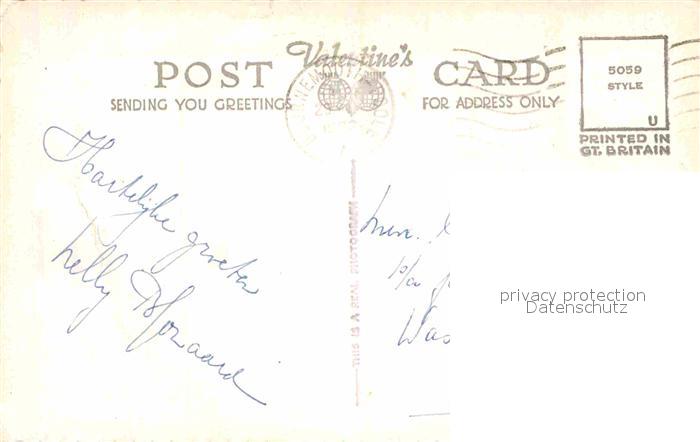 Valentine's
POST CARD
SENDING YOU GREETINGS
FOR ADDRESS ONLY
5059
STYLE
U
PRINTED IN
GT. BRITAIN
Hartelijke
groeten
Nelly
THIS IS A REAL PHOTOGRAPH
Mevr.
p/a
Was
privacy protection
Datenschutz